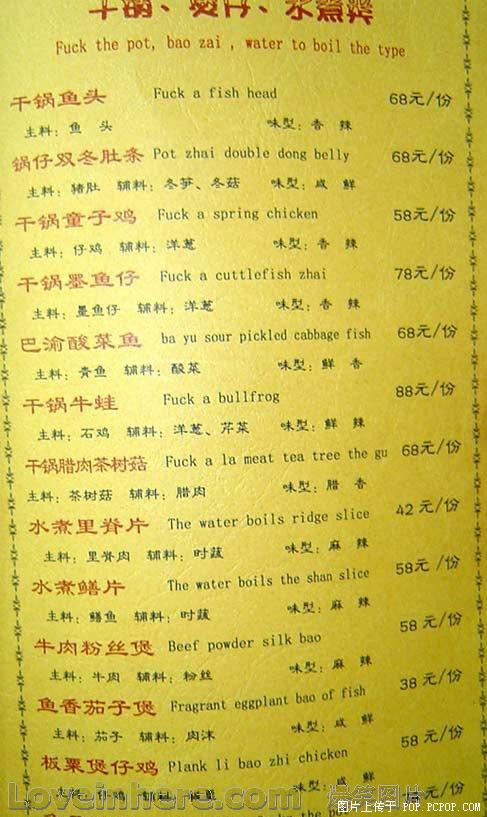 干锅、煲仔、水煮类
Fuck the pot, bao zai , water to boil the type
干锅鱼头 Fuck a fish head 68元/份
主料: 鱼 头 味型: 香 辣
锅仔双冬肚条 Pot zhai double dong belly 68元/份
主料: 猪肚 辅料: 冬笋、冬菇 味型: 咸 鲜
干锅童子鸡 Fuck a spring chicken 58元/份
主料: 仔鸡 辅料: 洋葱 味型: 香 辣
干锅墨鱼仔 Fuck a cuttlefish zhai 78元/份
主料: 墨鱼仔 辅料: 洋葱 味型: 香 辣
巴渝酸菜鱼 ba yu sour pickled cabbage fish 68元/份
主料: 青鱼 辅料: 酸菜 味型: 鲜 香
干锅牛蛙 Fuck a bullfrog 88元/份
主料: 石鸡 辅料: 洋葱、芹菜 味型: 鲜 辣
干锅腊肉茶树菇 Fuck a la meat tea tree the gu 68元/份
主料: 茶树菇 辅料: 腊肉 味型: 腊 香
水煮里脊片 The water boils ridge slice 42元/份
主料: 里脊肉 辅料: 时蔬 味型: 麻 辣
水煮鳝片 The water boils the shan slice 58元/份
主料: 鳝鱼 辅料: 时蔬 味型: 麻 辣
牛肉粉丝煲 Beef powder silk bao 58元/份
主料: 牛肉 辅料: 粉丝 味型: 麻 辣
鱼香茄子煲 Fragrant eggplant bao of fish 38元/份
主料: 茄子 辅料: 肉沫 味型: 咸 鲜
板栗煲仔鸡 Plank li bao zhi chicken 58元/份
主料: 仔鸡 辅料: 板栗 味型: 咸 鲜
Loveinhere.com 爆笑图片
图片上传于 POP.PCPOP.COM